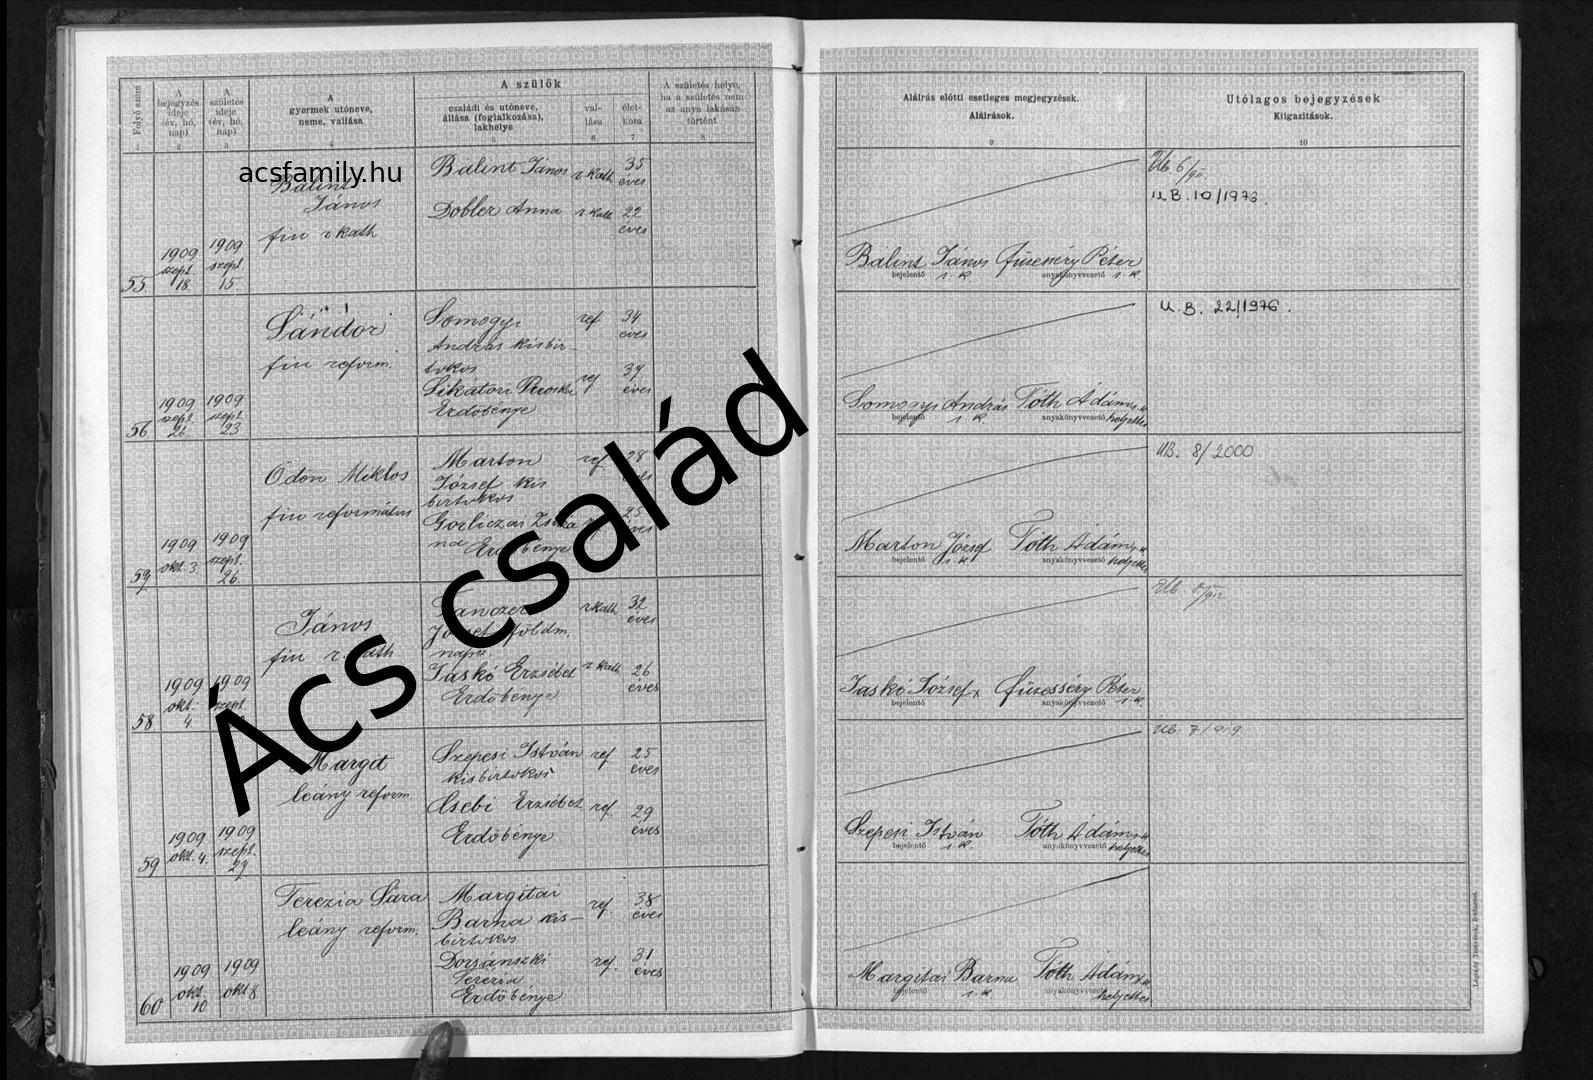 Folyó szám
A bejegyzés ideje (év, hó, nap)
A születés ideje (év, hó, nap)
A gyermek utóneve, neme, vallása
A szülők
családi és utóneve, állása (foglalkozása), lakhelye
val- lása
élet- kora
A születés helye, ha a születés nem az anya lakásán történt
Aláírás előtti esetleges megjegyzések. Aláírások.
Utólagos bejegyzések Kiigazítások.
1 2 3 4 5 6 7 8 9 10
acsfamily.hu
55
1909 szept. 18
1909 szept. 15
Bálint János
fiu r kath
Bálint János r kath 35 éves
Dobler Anna r kath 22 éves
U.B. 10/1976.
Bálint János s. k.
bejelentő
Füzesséry Péter s. k.
anyakönyvvezető
56
1909 szept. 26
1909 szept. 23
Sándor
fiu reform.
Somogyi András kisbir-
tokos
ref 34 éves
Sikatori Piroska
Erdőbénye
ref éves
U.B. 22/1976.
Somogyi András s. k.
bejelentő
Tóth Ádám
anyakönyvvezető helyettes
1909 okt. 3
1909 szept. 26
Ödön Miklós
fiu református
Marton József kis
birtokos
ref 28
Erdőbénye
25
UB. 8/2000
Marton József s. k.
bejelentő
Tóth Ádám
anyakönyvvezető helyettes
58
1909 okt. 4
1909 szept.
János
fiu
József földm.
naps.
r kath 32 éves
Jaskó Erzsébet
Erdőbénye
r kath 26 éves
Jaskó József x
bejelentő
Füzesséry Péter s. k.
anyakönyvvezető
59
1909 okt. 4.
1909 szept. 27
Margit
leány reform.
Szepesi István
kisbirtokos
ref 25 éves
Csebi Erzsébet
Erdőbénye
ref. 29 éves
Ub. 7/919
Szepesi István s. k.
bejelentő
Tóth Ádám
anyakönyvvezető helyettes
60
1909 okt. 10
1909 okt 8
Terézia Sára
leány reform.
Margitai
Barna kis-
birtokos
ref 38 éves
Dorsánszki
Terézia
Erdőbénye
ref. 31 éves
Margitai Barna s. k.
bejelentő
Tóth Ádám
anyakönyvvezető helyettes
Ács család